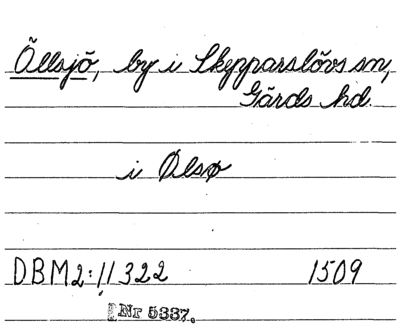 Öllsjö, by i Skepparslövs sn,
Gärds hd.
i Ølsø
DBM2:11322 1509
Nr 5337.